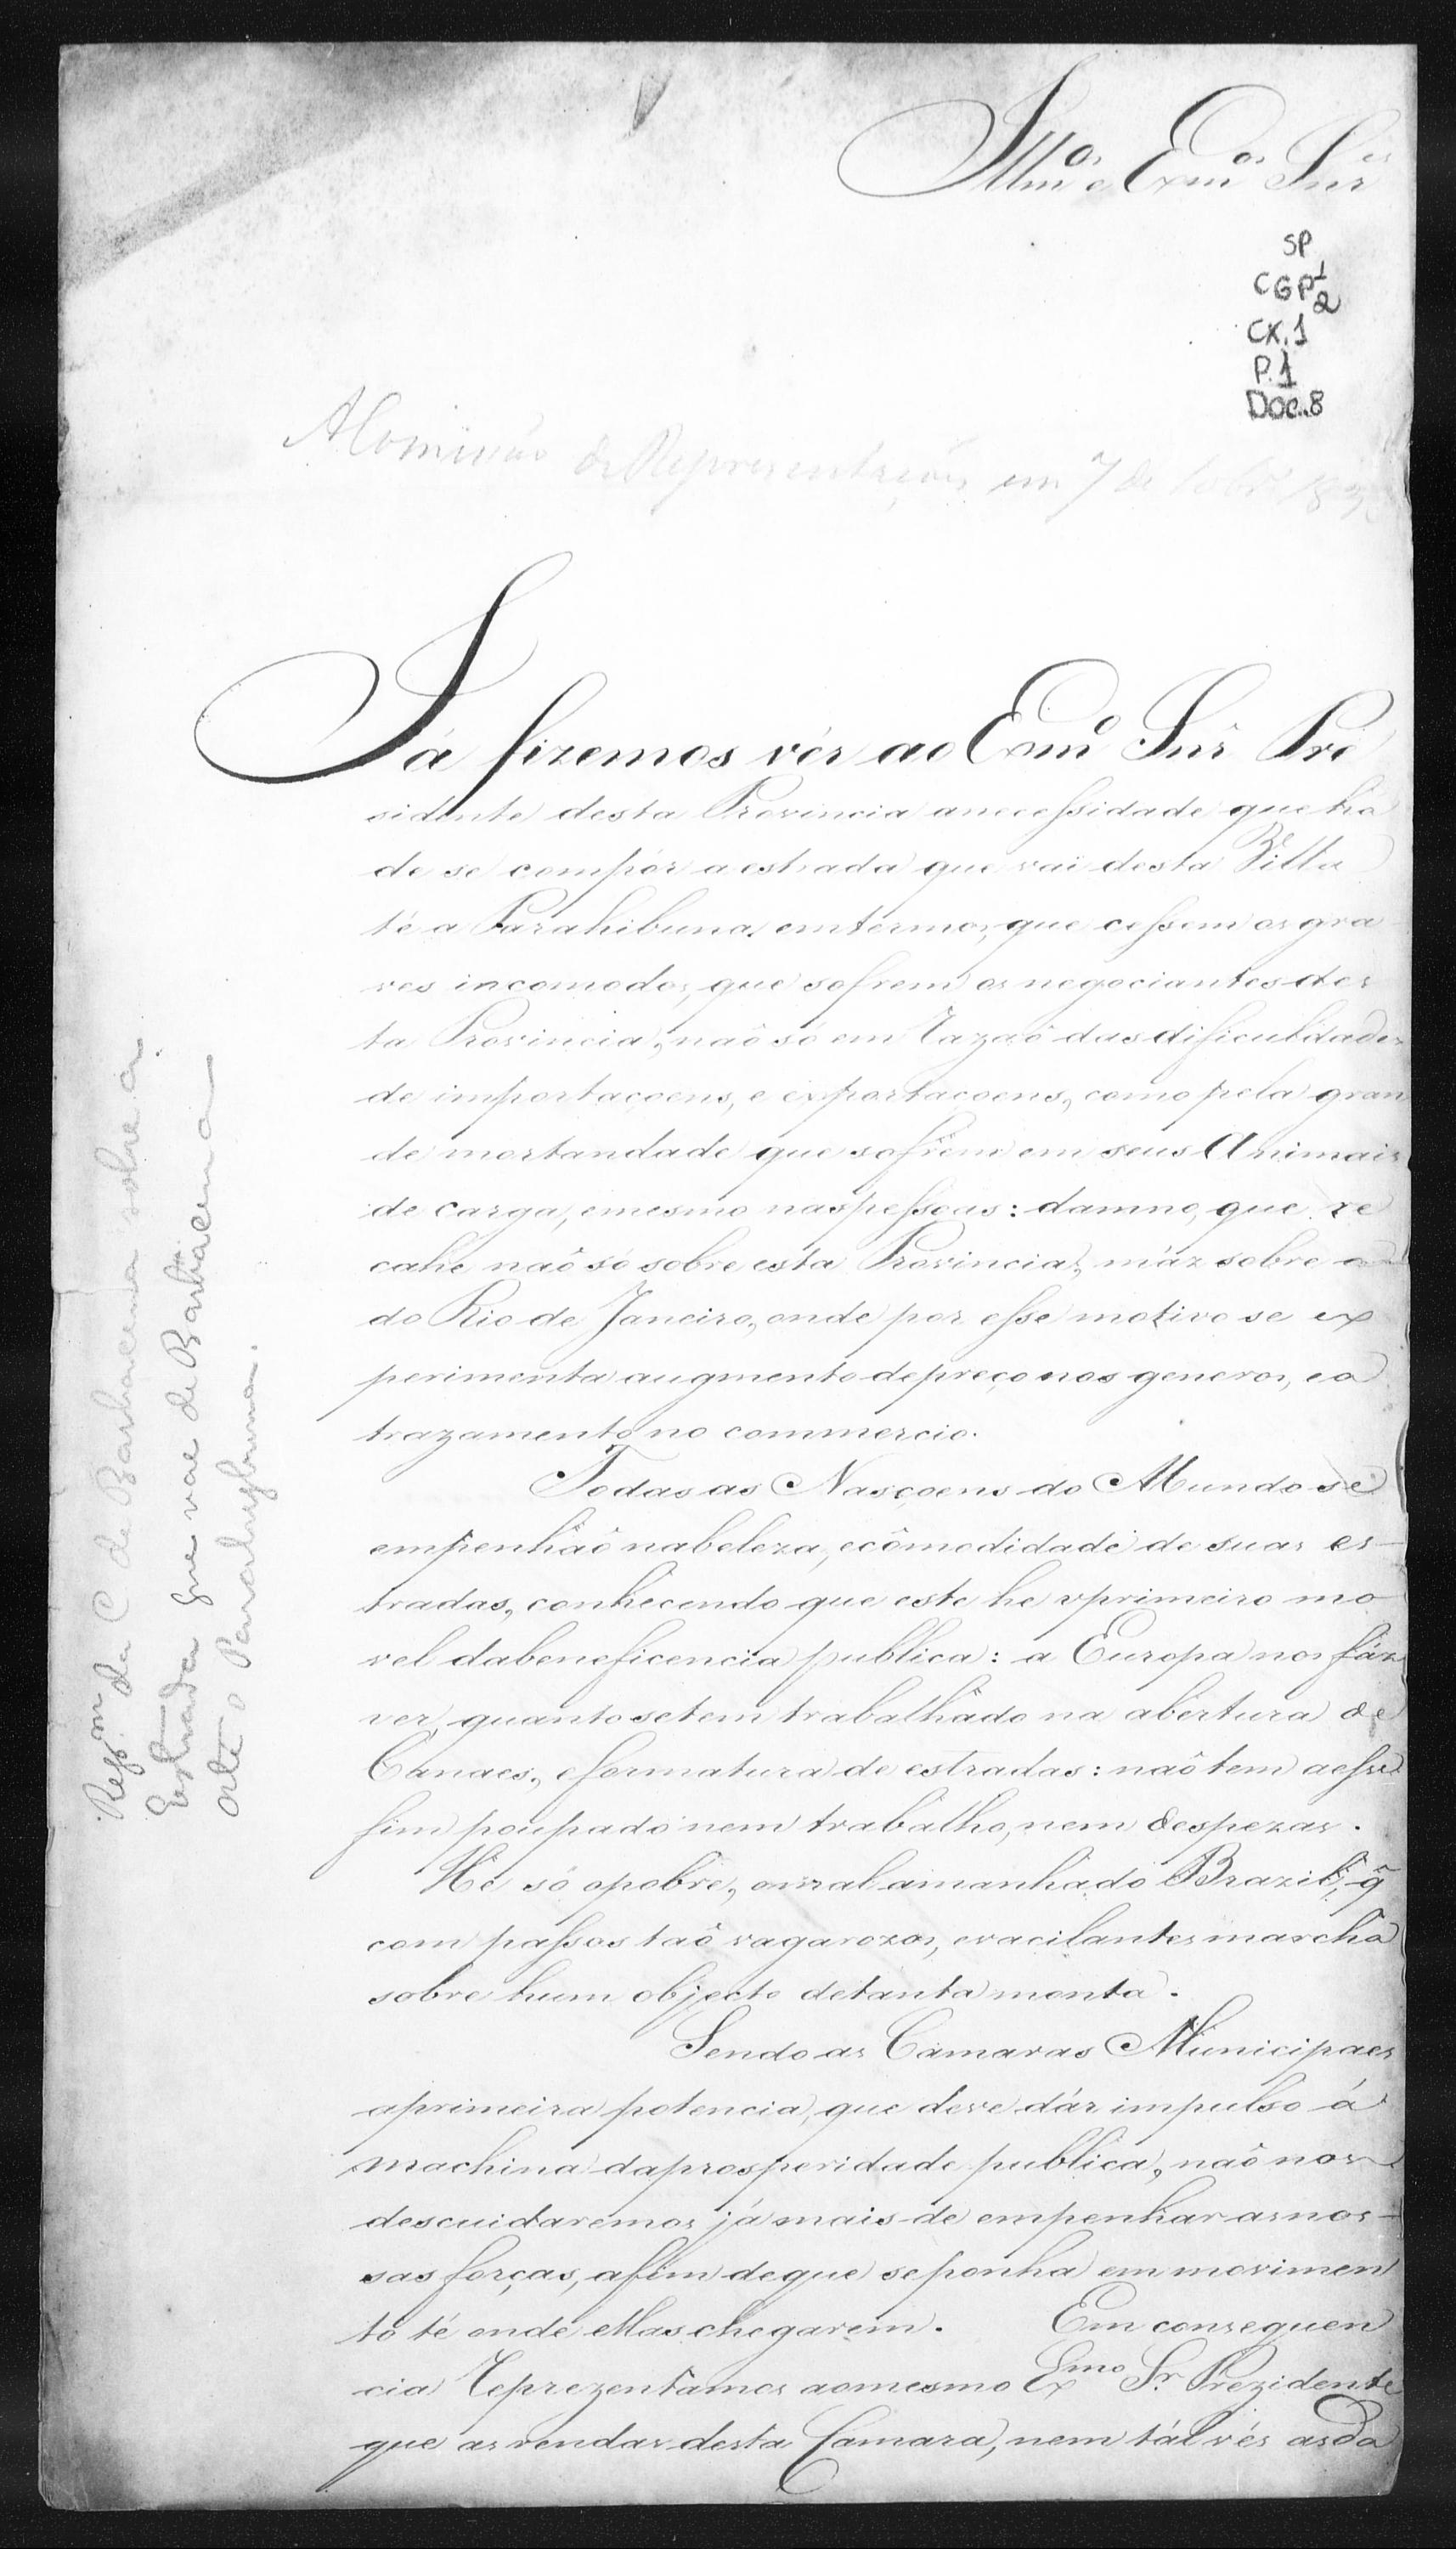 Illm.os e Exm.os Snr.es
SP
CGP 1
2
CX. 1
P. 1
Doc. 8
A Comissão de Reprezentações em 7 de
Já fizemos vêr ao Exmº Snr Pre
sidente desta Provincia anecessidade que há
de se compôr a estrada que vai desta Villa
té a Parahibuna, emtermos, que cessem os gra
ves incomodos, que sofrem os negociantes des
ta Provincia, naõ só em razaõ das dificuldades
de importaçoens, e exportaçoens, como pela gran
de mortandade que sofrem em seus Animais
de carga, emesmo naspessoas: damno, que re
cahe naõ só sobre esta Provincia, máz sobre a
do Rio de Janeiro, onde por esse motivo se ex
perimenta augmento depreço nos generos, e a
trazamento no commercio.
Todas as Nasçoens do Mundo se
empenhaõ nabeleza, ecômodidade de suas es-
tradas, conhecendo que este he oprimeiro mo
vel dabeneficencia publica: a Europa nos fáz
ver, quanto setem trabalhado na abertura de
Canaes, eformatura de estradas: naõ tem aesse
fim poupado nem trabalho, nem despezas.
He só opobre, omal amanhado Brazil, q̃
com passos taõ vagarozos, evacilantes marcha
sobre hum objecto detanta monta.
Sendo as Camaras Municipaes
aprimeira potencia, que deve dár impulso á
machina daprosperidade publica, naõ nos
descuidaremos jámais de empenhar asnos-
sas forças, afim deque seponha em movimen
to té onde ellas chegarem. Em consequen
cia reprezentamos aomesmo Exmo Sr. Prezidente
que asrendas desta Camara, nem tálvés asda
Repm da C de Barbacena sobre a
Estrada que vae de Barbacena
até o Parahybuna.